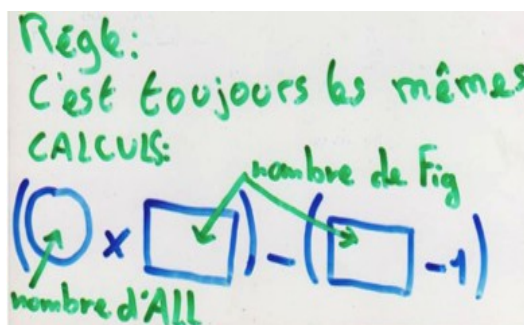 Régle:
C'est toujours les mêmes
CALCULS:
nombre de Fig
( x ) - ( -1)
nombre d'ALL